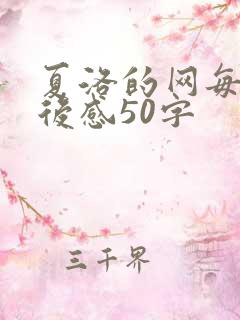 夏洛的网每
後感50字
三千界